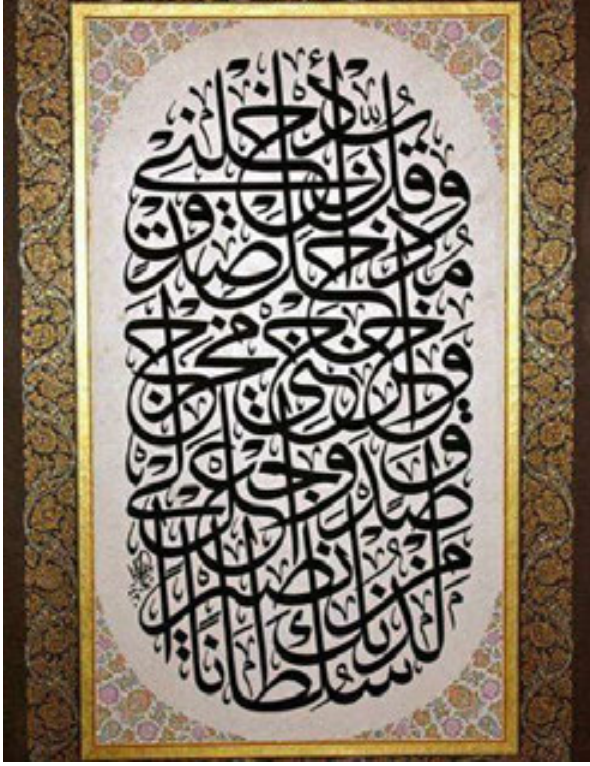 وَقُل رَّبِّ أَدْخِلْنِي
مُدْخَلَ صِدْقٍ
وَأَخْرِجْنِي مُخْرَجَ
صِدْقٍ وَاجْعَل لِّي
مِن لَّدُنكَ
سُلْطَانًا نَّصِيرًا